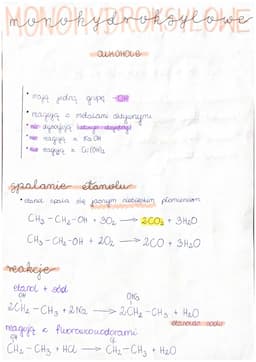 MONOHYDROKSYLOWE
monohydroksylowe
alkohole
• mają jedną grupę -OH
• reagują z metalami aktywnymi
• nie dysocjują
• nie reagują z NaOH
• nie reagują z Cu(OH)₂
spalanie etanolu
• etanol spala się jasnym niebieskim płomieniem
CH₃-CH₂-OH + 3O₂ → 2CO₂ + 3H₂O
CH₃-CH₂-OH + 2O₂ → 2CO + 3H₂O
reakcje
etanol + sód
OH ONa
2CH₂-CH₃ + 2Na → 2CH₂-CH₃ + H₂O
etanolan sodu
reagują z fluorowcowodorami
OH Cl
CH₂-CH₃ + HCl → CH₂-CH₃ + H₂O